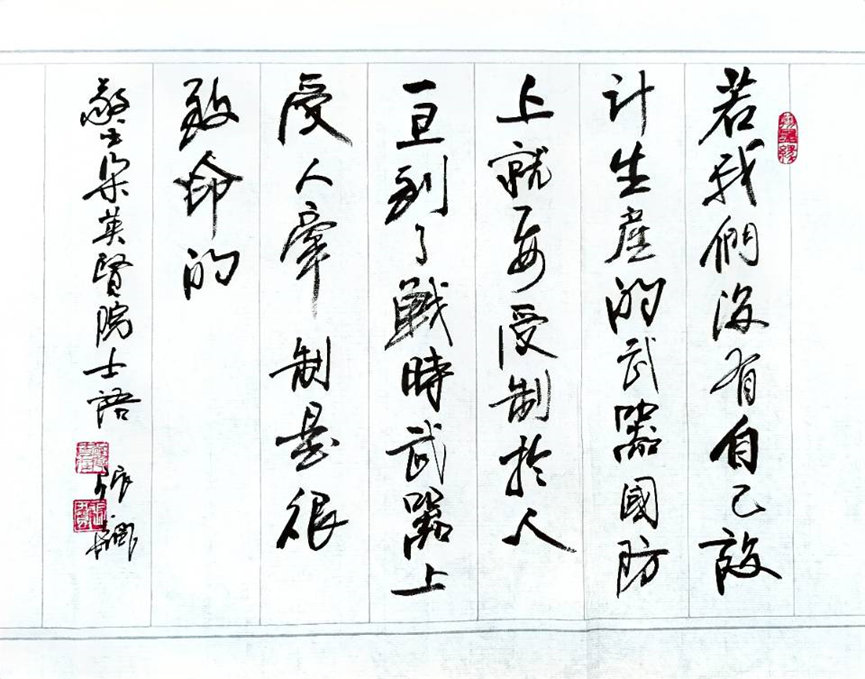 若我們沒有自己設
計生產的武器國防
上就要受制於人
一旦到了戰時武器上
受人牽制是很
致命的
敬書朵英賢院士語